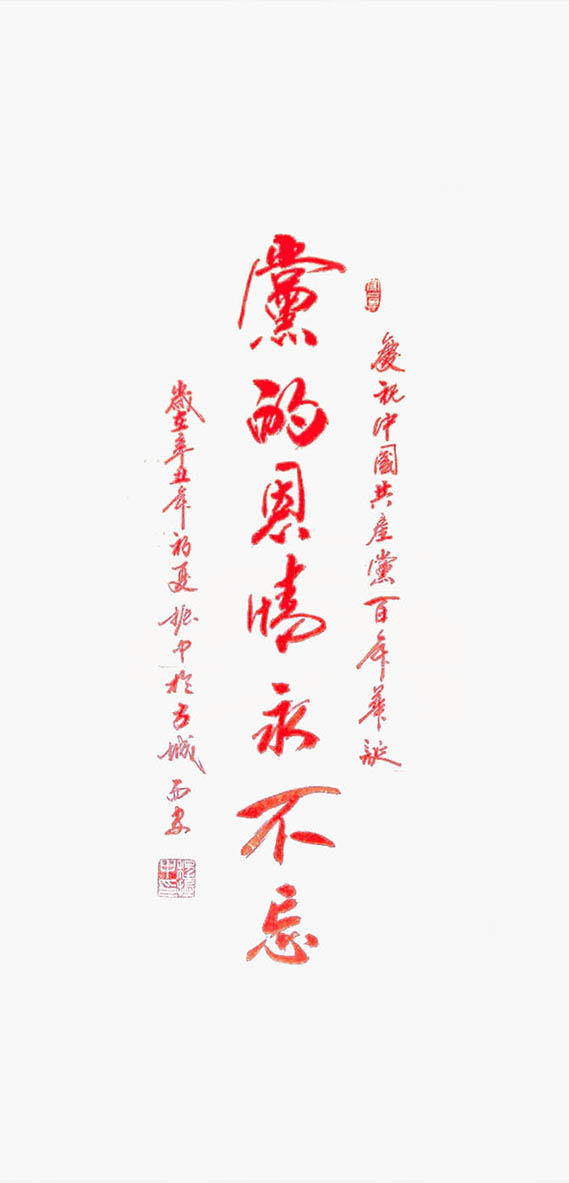 慶祝中國共產黨百年華誕
黨的恩情永不忘
歲在辛丑年初夏振中於古城西安